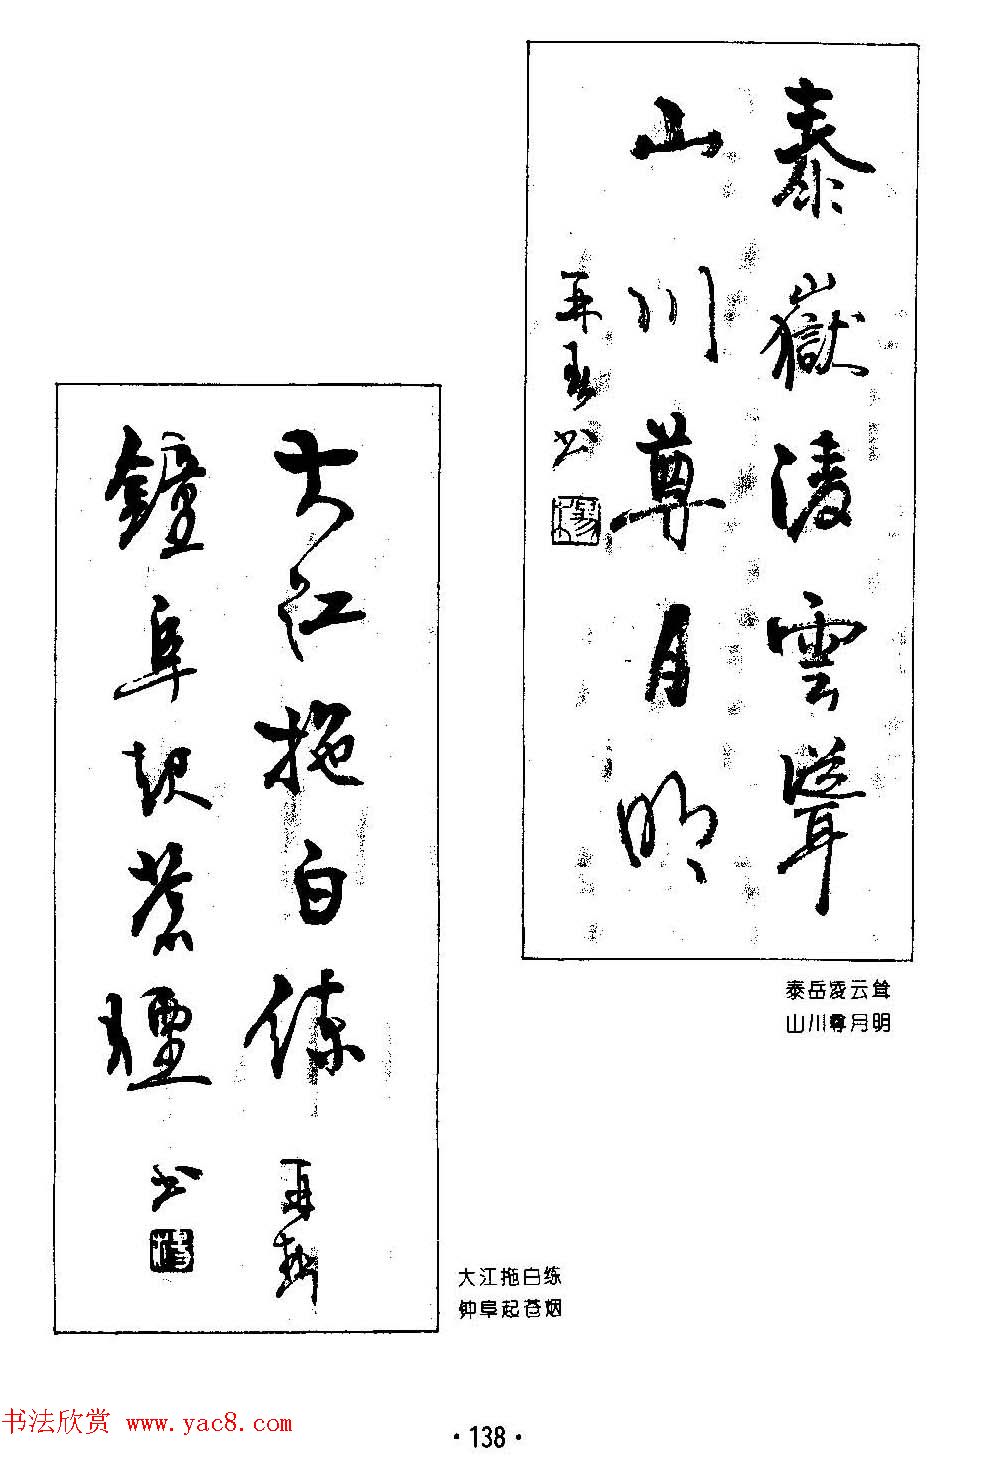 泰嶽凌雲聳
山川尊月明
再春書
泰岳凌云耸
山川尊月明
大江拖白练
鍾阜起蒼煙
書
大江拖白练
钟阜起苍烟
书法欣赏 www.yac8.com
·138·